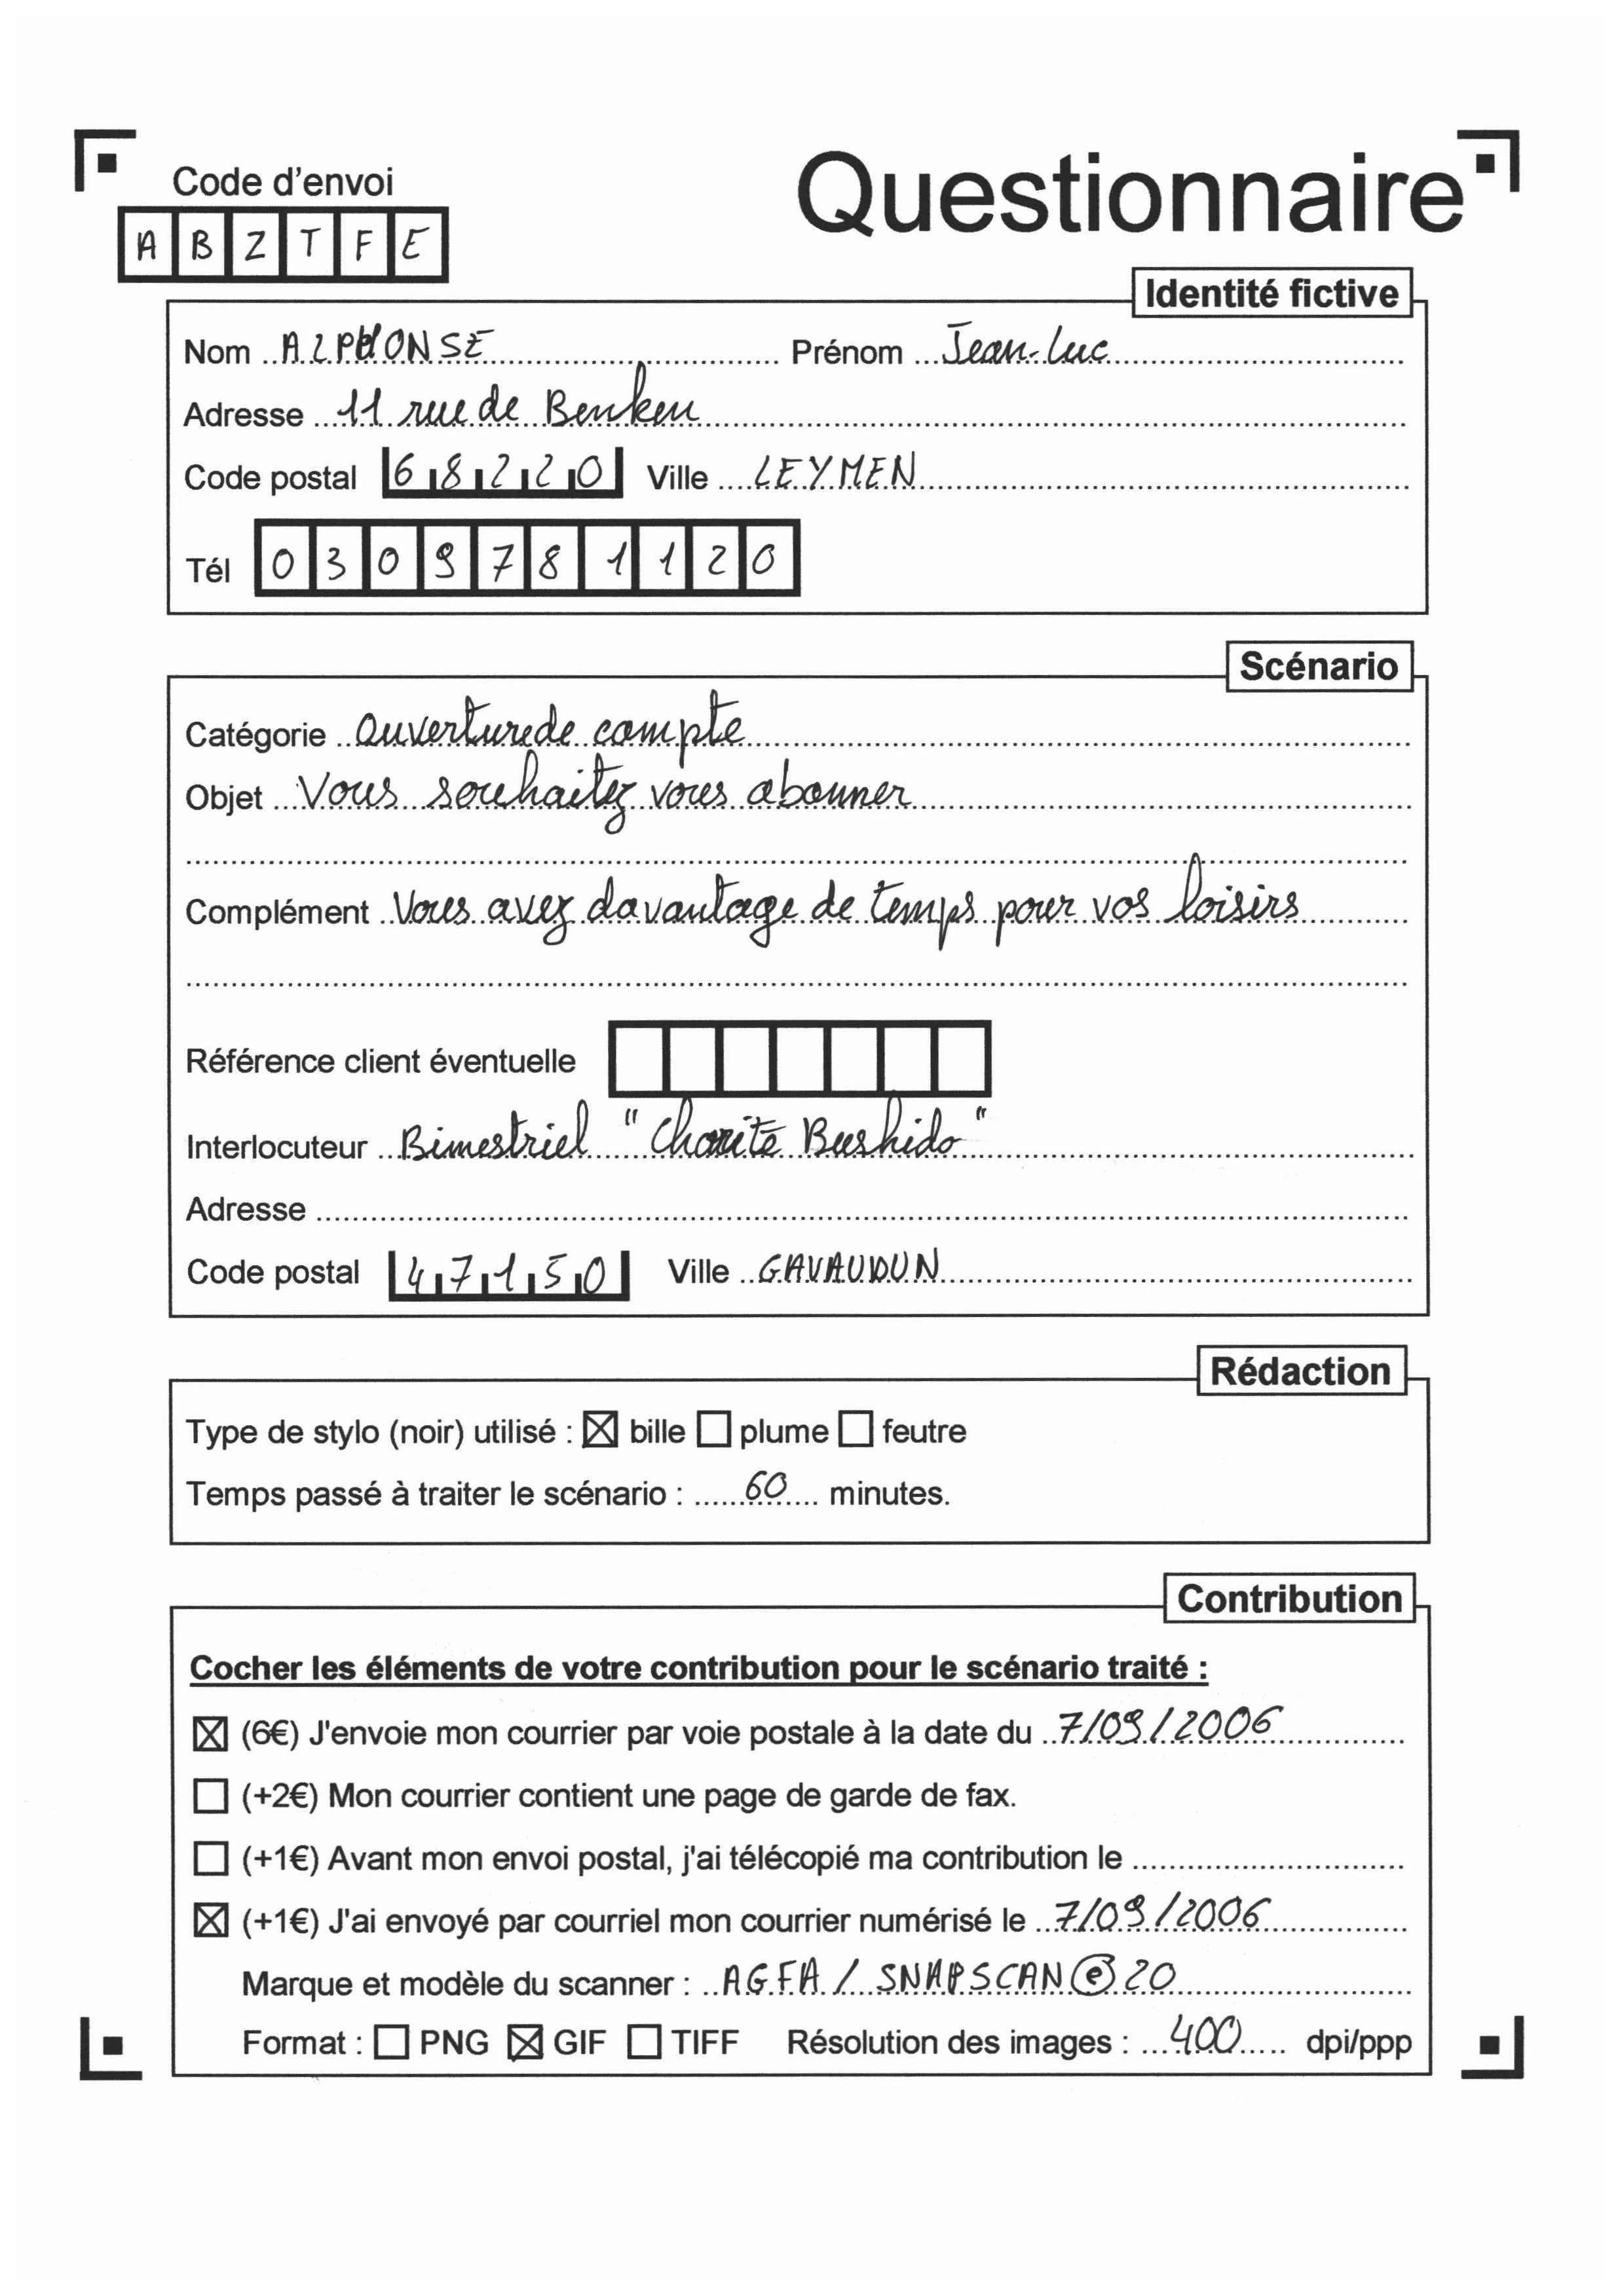 Code d'envoi
Questionnaire
A B Z T F E
Identité fictive
Nom ALPHONSE Prénom Jean-Luc
Adresse 11 rue de Benken
Code postal 68220 Ville LEYMEN
Tél 0309781120
Scénario
Catégorie Ouverture de compte
Objet Vous souhaitez vous abonner
Complément Vous avez davantage de temps pour vos loisirs
Référence client éventuelle
Interlocuteur Bimestriel "Charité Bushido"
Adresse
Code postal 47150 Ville GAVAUDUN
Rédaction
Type de stylo (noir) utilisé : ☒ bille ☐ plume ☐ feutre
Temps passé à traiter le scénario : 60 minutes.
Contribution
Cocher les éléments de votre contribution pour le scénario traité :
☒ (6€) J'envoie mon courrier par voie postale à la date du 7/09/2006
☐ (+2€) Mon courrier contient une page de garde de fax.
☐ (+1€) Avant mon envoi postal, j'ai télécopié ma contribution le
☒ (+1€) J'ai envoyé par courriel mon courrier numérisé le 7/09/2006
Marque et modèle du scanner : AGFA / SNAPSCAN e 20
Format : ☐ PNG ☒ GIF ☐ TIFF Résolution des images : 400 dpi/ppp